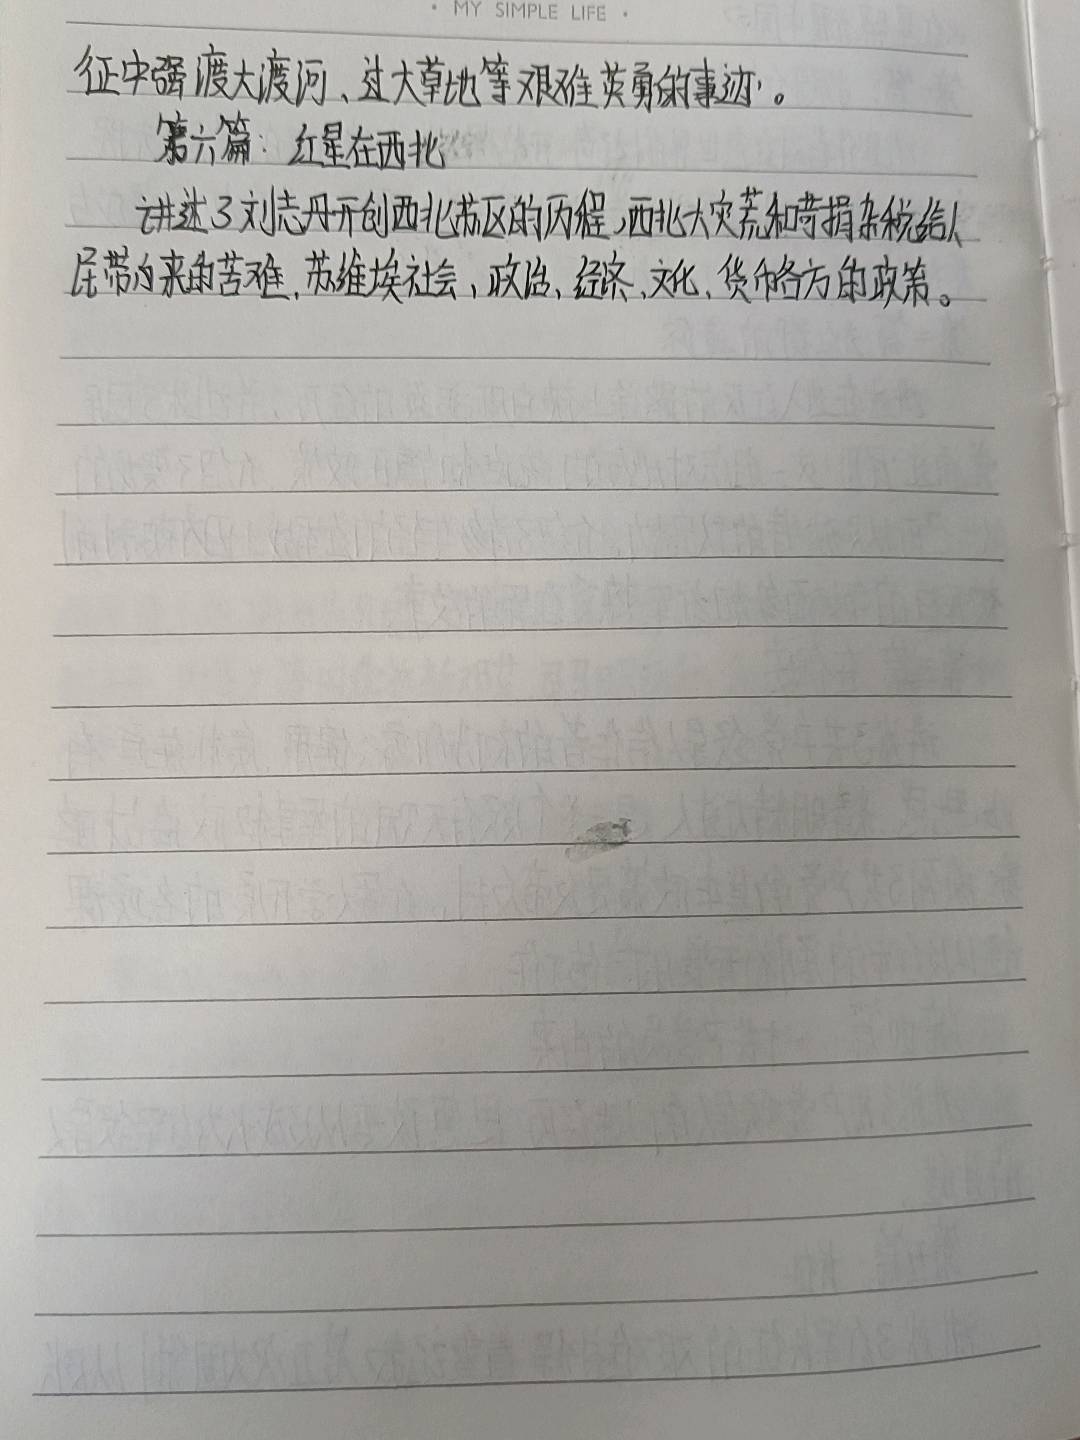 · MY SIMPLE LIFE ·
征中强渡大渡河、过大草地等艰难英勇的事迹。
第六篇：红星在西北
讲述了刘志丹开创西北苏区的历程，西北大灾荒和苛捐杂税给人
民带来的苦难，苏维埃社会，政治、经济、文化、货币各方的政策。